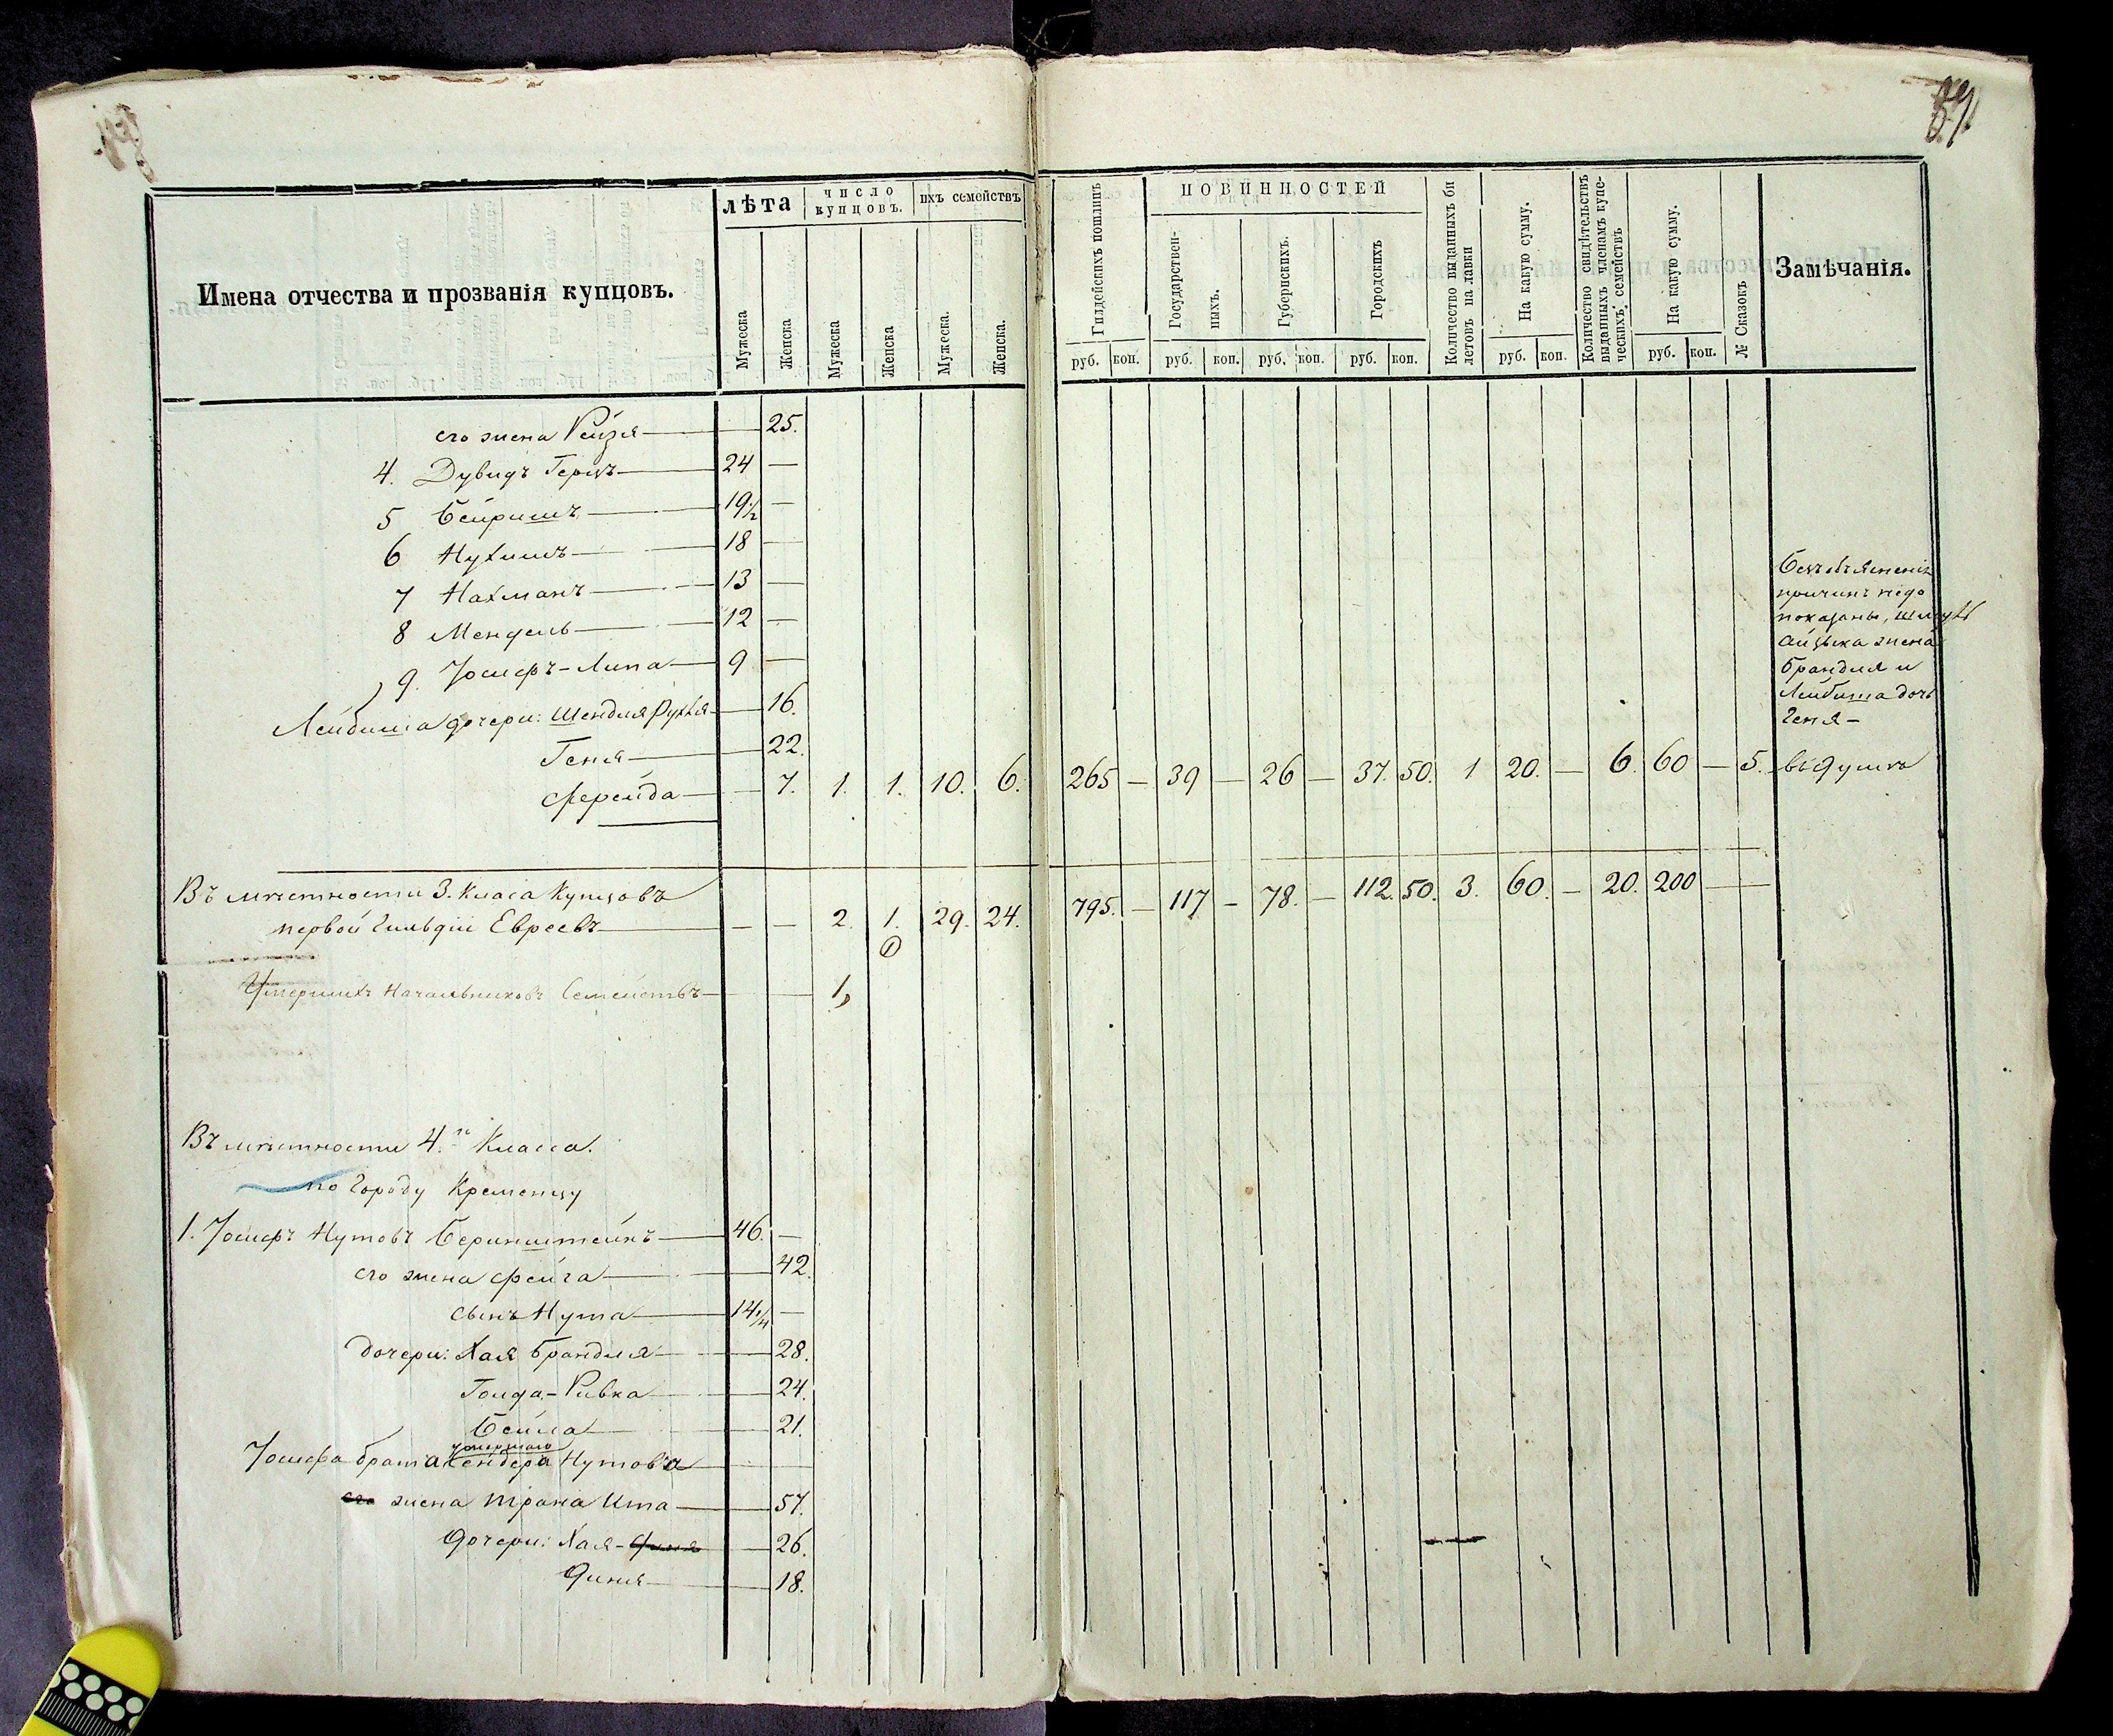 87.
Имена отчества и прозванія купцовъ.
лѣта
Мужеска
Женска
число купцовъ.
Мужеска
Женска
ихъ семействъ
Мужеска.
Женска.
Гилдейскихъ пошлинъ
руб. коп.
ПОВИННОСТЕЙ
Государственныхъ.
руб. коп.
Губернскихъ.
руб. коп.
Городскихъ
руб. коп.
Количество выданныхъ билетовъ на лавки
На какую сумму.
руб. коп.
Количество свидѣтельствъ выданныхъ членамъ купеческихъ семействъ
На какую сумму.
руб. коп.
№ Сказокъ
Замѣчанія.
его жена Рейзя — 25.
4. Дувидъ Герцъ — 24 —
5 Бейришъ — 19½ —
6 Нухимъ — 18 —
7 Нахманъ — 13 —
8 Мендель — 12 —
9. Іосифъ-Липа — 9 —
Лейбиша дочери: Шендля Рухля — 16.
Геня — 22.
Фрейда — 7. 1. 1. 10. 6. 265 — 39 — 26 — 37. 50. 1 20. — 6. 60 — 5.
Безъ объясненія
причинъ недо
показаны,
Айзыка жена
Брандля и
Лейбиша дочь
Геня —
Въ мѣстности 3. Класа Купцовъ
первой Гильдіи Евреевъ — — — 2. 1. 29. 24. 795. — 117 — 78. — 112. 50. 3. 60. — 20. 200 — —
1
Умершихъ Начальниковъ Семействъ — — 1,
Въ мѣстности 4.го Класса.
по Городу Кременцу
1. Іосифъ Нутовъ Беринштейнъ — 46. —
его жена Фейга — 42.
сынъ Нута — 14¼ —
дочери: Хая Брандля — 28.
Голда-Ривка — 24.
Бейла — 21.
умершаго
Іосифа брата Сендера Нутова —
его жена Трана Ита — 57.
дочери: Хая — 26.
Диня — 18.